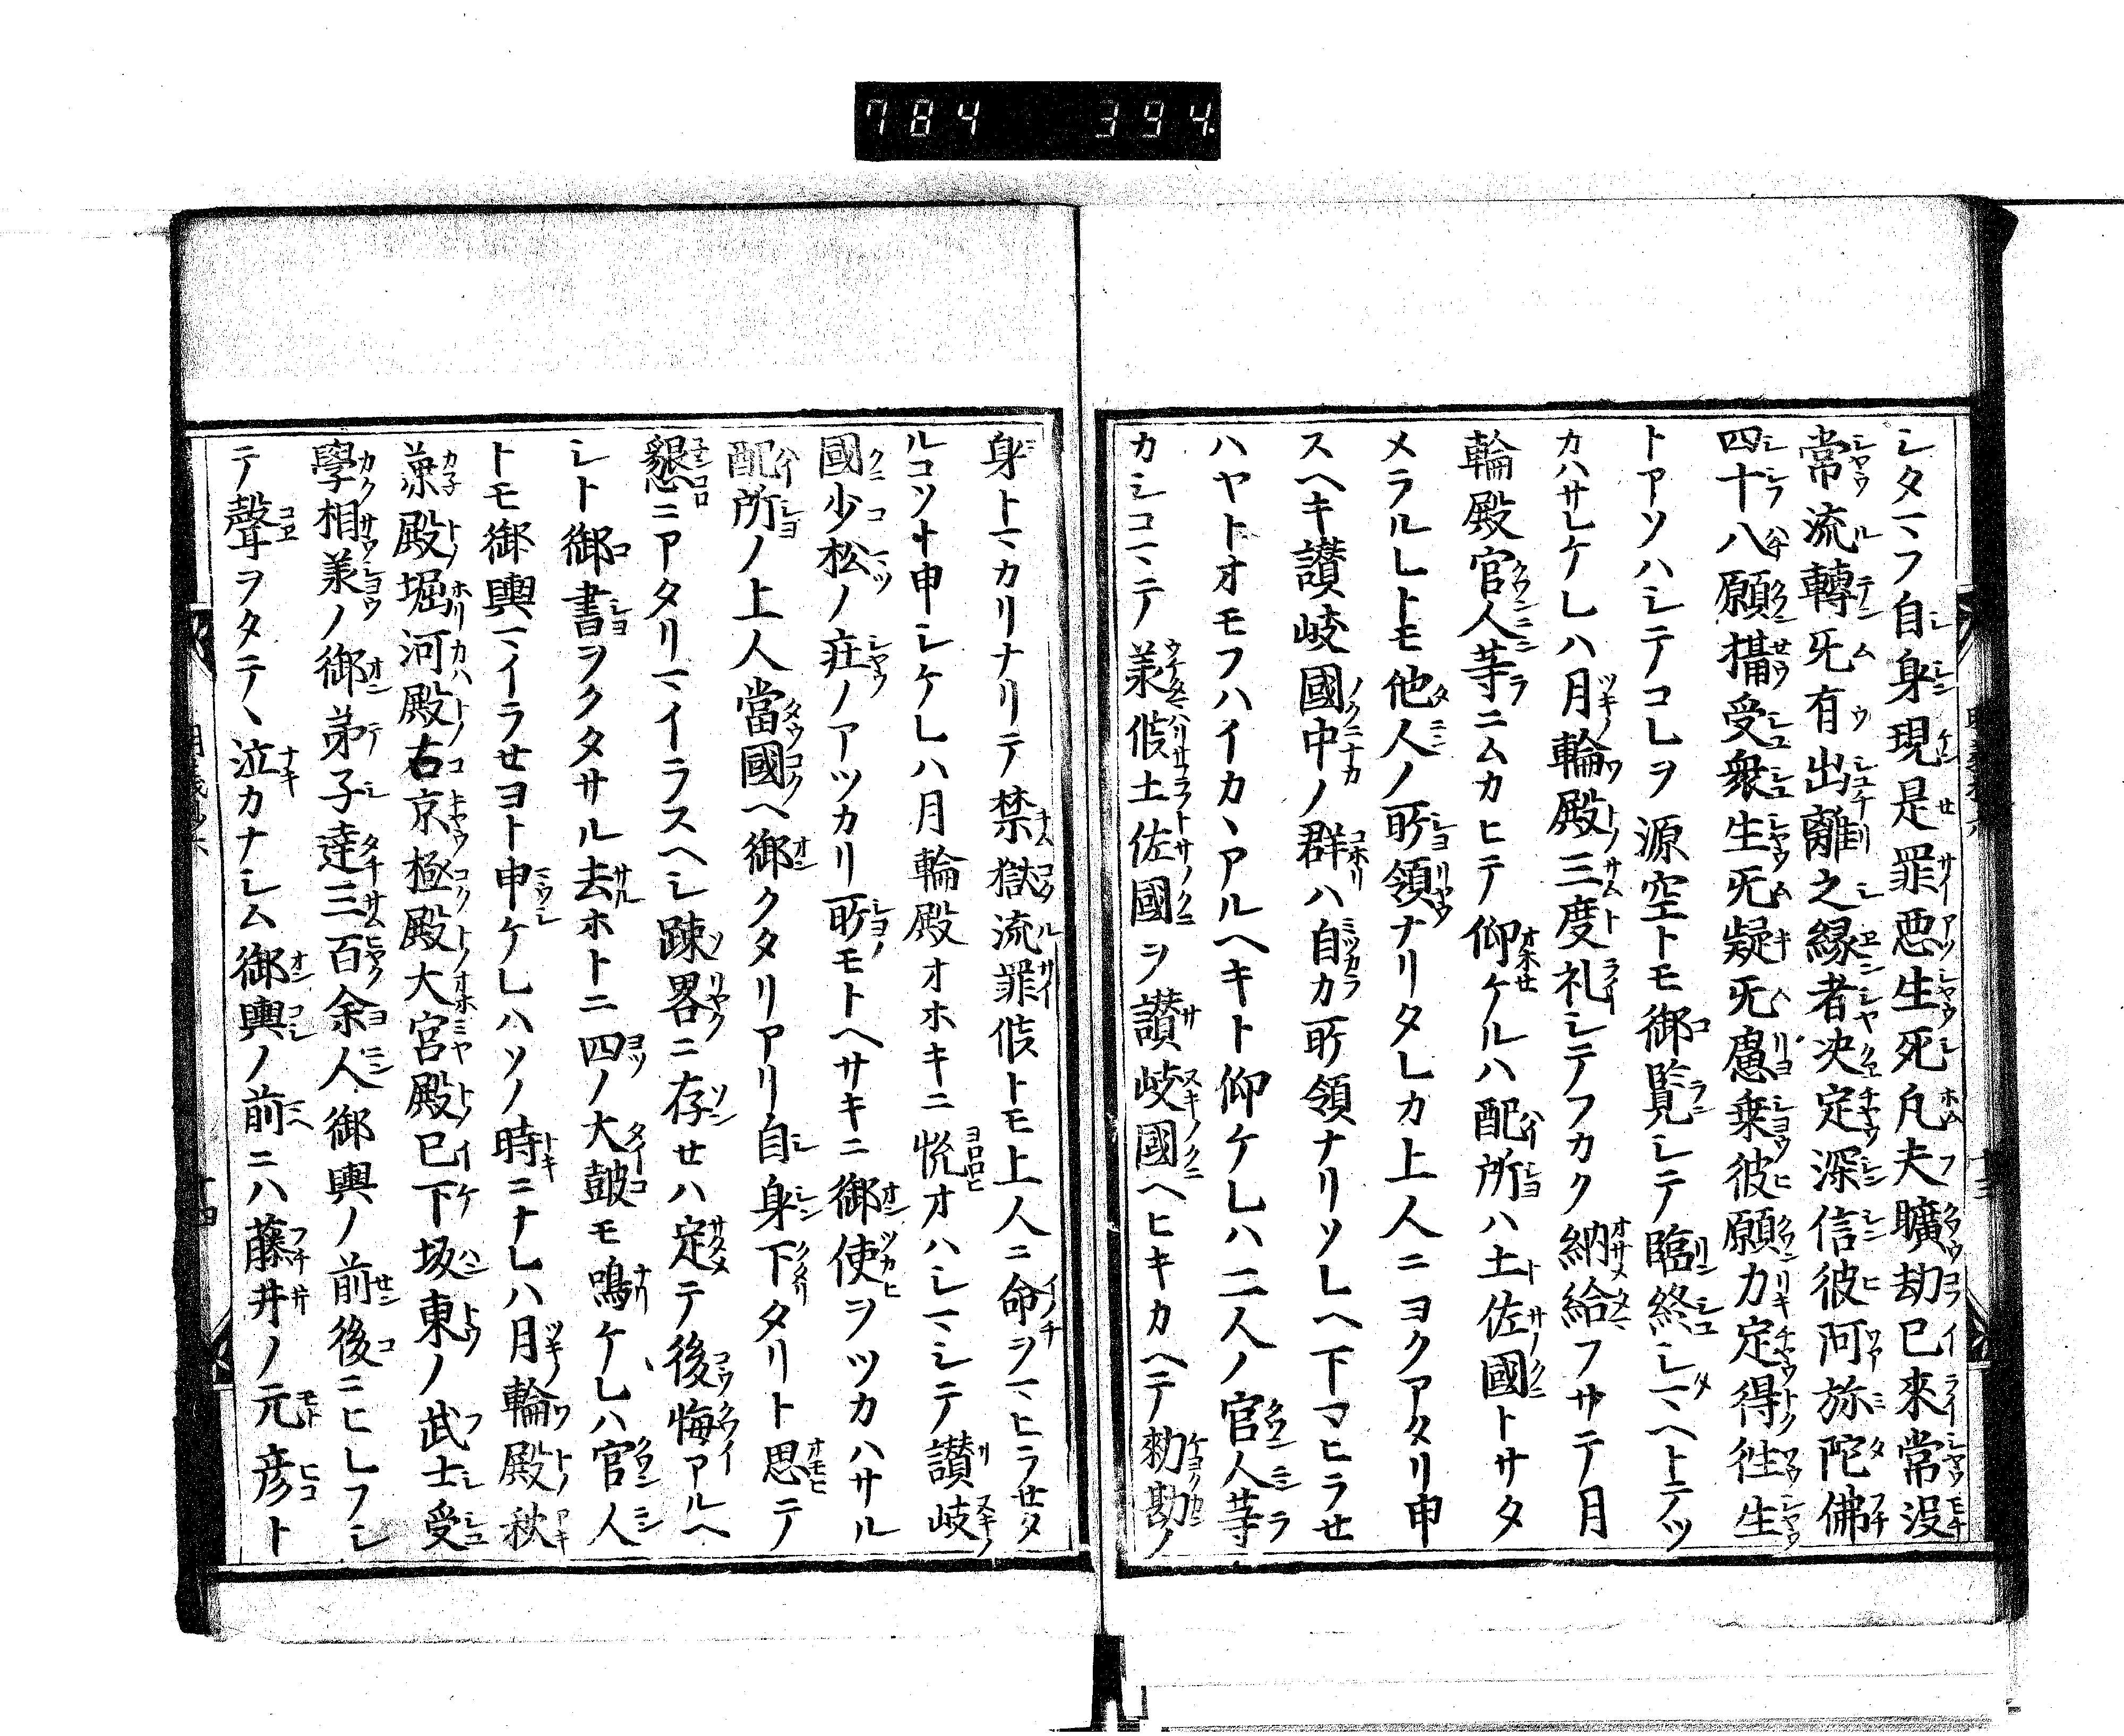 784 394.
シタマフ自身現是罪悪生死凡夫曠劫已來常没
常流轉旡有出離之縁者决定深信彼阿弥陀佛
四十八願攝受衆生旡疑旡慮乗彼願力定得徃生
トアソハシテコレヲ源空トモ御覧シテ臨終シマヘトテツ
カハサレケレハ月輪殿三度礼シテフカク納給フサテ月
輪殿官人等ニムカヒテ仰ケルハ配所ハ土佐國トサタ
メラルレトモ他人ノ所領ナリタレカ上人ニヨクアタリ申
スヘキ讃岐國中ノ群ハ自カ所領ナリソレヘ下マヒラせ
ハヤトオモフハイカヽアルヘキト仰ケレハ二人ノ官人等
カシコマテ羕候土佐國ヲ讃岐國ヘヒキカヘテ勅勘ノ
身トマカリナリテ禁獄流罪候トモ上人ニ命ヲマヒラせタ
ルコソト申シケレハ月輪殿オホキニ悦オハシマシテ讃岐
國少松ノ庄ノアツカリ所モトヘサキニ御使ヲツカハサル
配所ノ上人當國ヘ御クタリアリ自身下タリト思テ
懇ニアタリマイラスヘシ踈畧ニ存せハ定テ後悔アルヘ
シト御書ヲクタサル去ホトニ四ノ大皷モ鳴ケレハ官人
トモ御輿マイラせヨト申ケレハソノ時ニナレハ月輪殿秋
兼殿堀河殿右京極殿大宮殿已下坂東ノ武士受
學相羕ノ御弟子達三百余人御輿ノ前後ニヒレフシ
テ聲ヲタテヽ泣カナシム御輿ノ前ニハ藤井ノ元彦ト